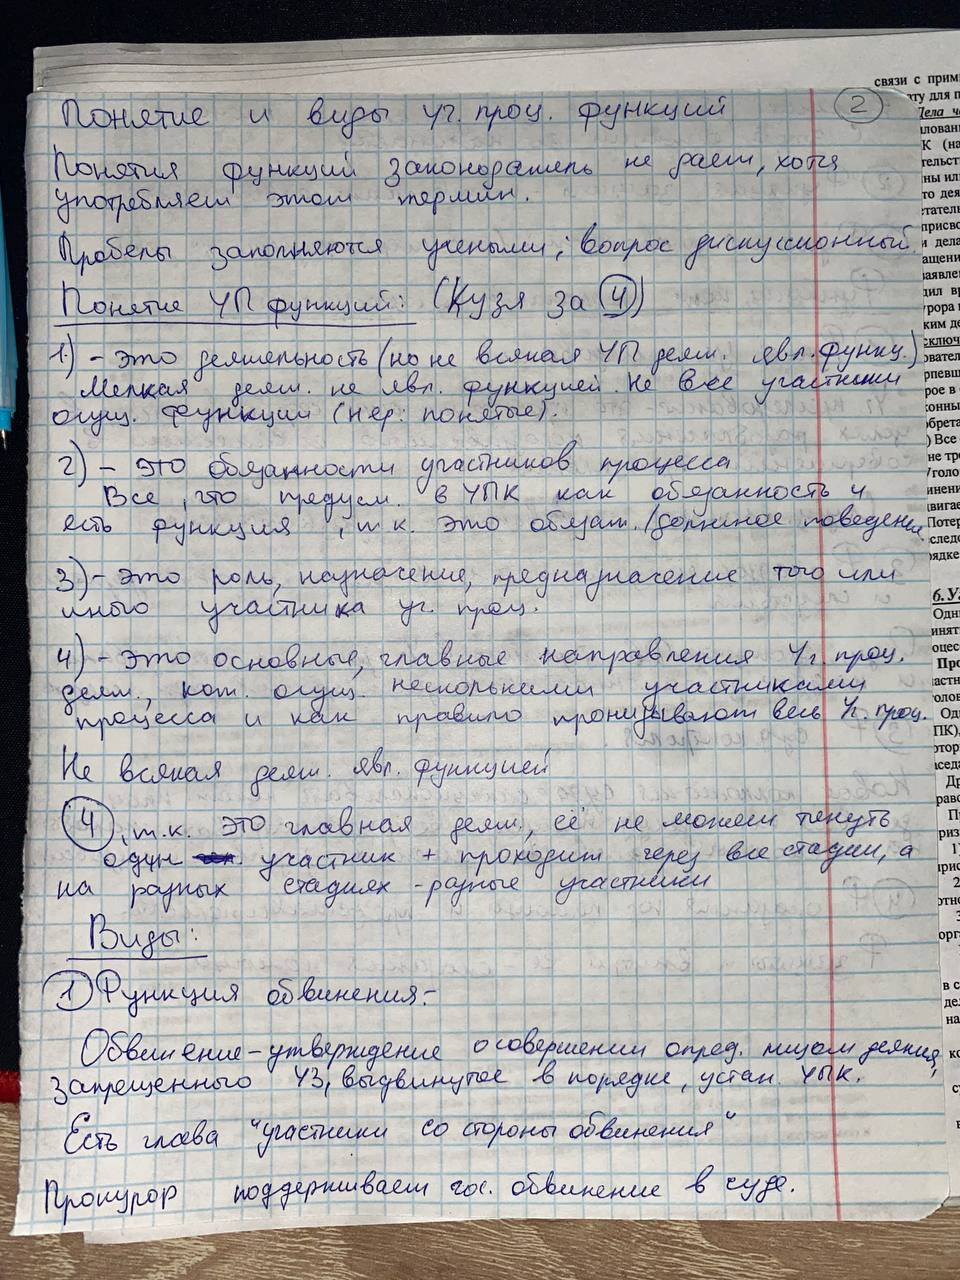 Понятие и виды уг. проц. функций
2
Понятия функций законодатель не дает, хотя
употребляет этот термин.
Пробелы заполняются учеными; вопрос дискуссионный
Понятие УП функций: (Кузя за 4)
1.) - это деятельность (но не всякая УП деят. явл. функц.)
Мелкая деят. не явл. функцией. Не все участники
осущ. функции (нер: понятые).
2) - это обязанности участников процесса
Все, что предусм. в УПК как обязанность и
есть функция, т.к. это обязат. / должное поведение
3) - это роль, назначение, предназначение того или
иного участника уг. проц.
4) - это основные, главные направления Уг. проц.
деят., кот. осущ. несколькими участниками
процесса и как правило пронизывают весь Уг. проц.
Не всякая деят. явл. функцией
4, т.к. это главная деят., её не может тянуть
один участник + проходит через все стадии, а
на разных стадиях - разные участники
Виды:
1 Функция обвинения:-
Обвинение - утверждение о совершении опред. лицом деяния,
запрещенного УЗ, выдвинутое в порядке, устан. УПК.
Есть глава "участники со стороны обвинения"
Прокурор поддерживает гос. обвинение в суде.
связи с прим